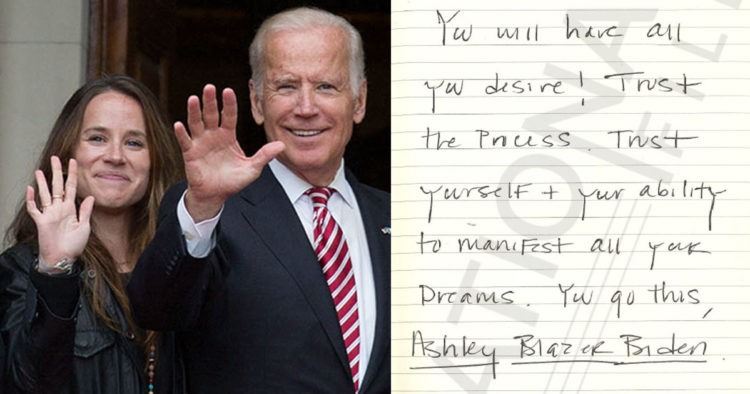 You will have all
you desire! Trust
the Process. Trust
yourself + your ability
to manifest all your
Dreams. You go this,
Ashley Blazer Biden.
ATIONA